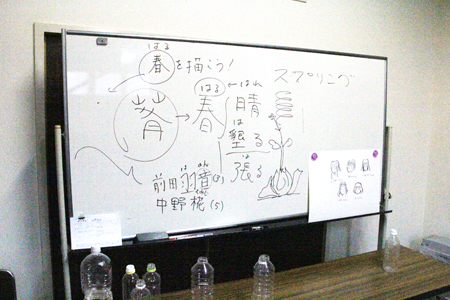 はる
春を描こう!
はる ← はれ
萅 → 春
晴
は
墾る
は
張る
スプリング
前田
中野 椛 (5)